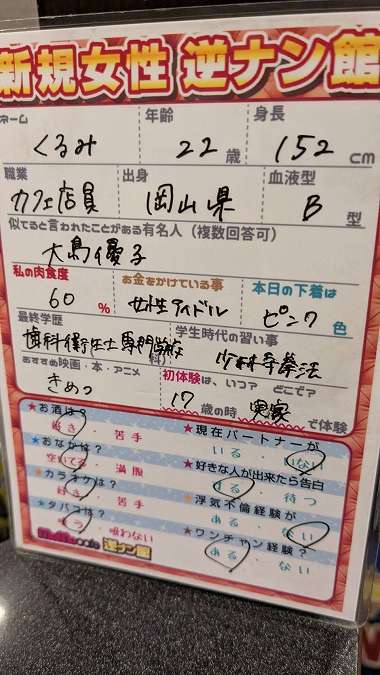 新規女性 逆ナン館
ネーム 年齢 身長
くるみ 22歳 152cm
職業 出身 血液型
カフェ店員 岡山県 B型
似てると言われたことがある有名人（複数回答可）
大島優子
私の肉食度 お金をかけている事 本日の下着は
60% 女性アイドル ピンク色
最終学歴 学生時代の習い事
歯科衛生士専門学校 少林寺拳法
おすすめ映画・本・アニメ 初体験は、いつ？ どこで？
きめつ 17歳の時 実家で体験
★お酒は？ ★現在パートナーが
好き・苦手 いる・いない
★おなかは？ ★好きな人が出来たら告白
空いてる・満腹 する・待つ
★カラオケは？ ★浮気不倫経験が
好き・苦手 ある・ない
★タバコは？ ★ワンチャン経験？
吸う・吸わない ある・ない
逆ナン館